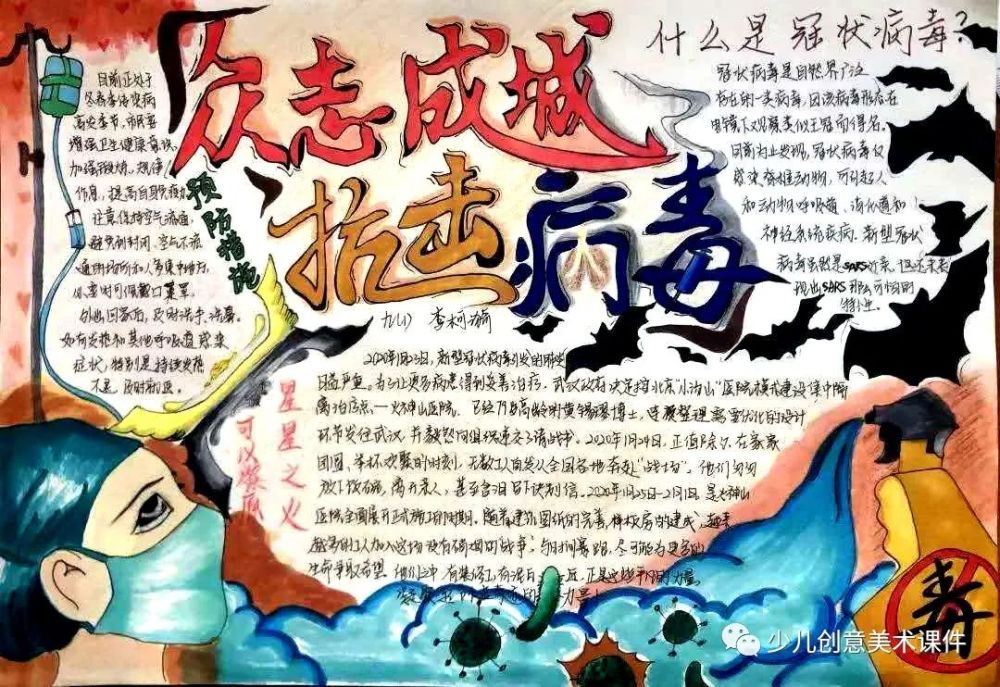 众志成城
抗击病毒
九(1) 李柯瑜
什么是冠状病毒?
冠状病毒是自然界广泛
存在的一类病毒,因该病毒形态在
电镜下观察类似王冠而得名。
目前为止发现,冠状病毒仅
感染脊椎动物,可引起人
和动物呼吸道、消化道和
神经系统疾病。新型冠状
病毒虽然是SARS近亲,但还未表
现出SARS那么可怕的
特性。
预防措施
目前正处于
冬春季传染病
高发季节,市民要
增强卫生健康意识,
加强锻炼,规律
作息,提高自身免疫力
注意保持空气流通,
避免到封闭、空气不流
通的场所和人多集中地方,
必要时可佩戴口罩。
外出回家后,及时洗手、洗鼻。
如有发热和其他呼吸道感染
症状,特别是持续发热
不退,及时就医。
星星之火
可以燎原
2020年1月23日,新型冠状病毒引发的肺炎
日益严重。为了让更多病患得到妥善治疗,武汉政府决定将北京“小汤山”医院模式建设集中隔
离治疗点—火神山医院。已经79岁高龄的黄锡璆博士,连夜整理需要优化的设计
环节发往武汉,并毅然向组织递交了请战书。2020年1月24日,正值除夕,在家家
团圆、举杯欢聚的时刻,无数工人自发从全国各地奔赴“战场”。他们匆匆
放下饭碗,离开亲人,甚至含泪写下诀别信。2020年1月25日-2月1日是火神山
医院全面展开正式施工的周期。随着建筑图纸的完善,样板房的建成,越来
越多的工人加入这场没有硝烟的战争;与时间赛跑,尽可能为更多的
生命争取希望。他们之中,有装修工,有泥
毒
少儿创意美术课件